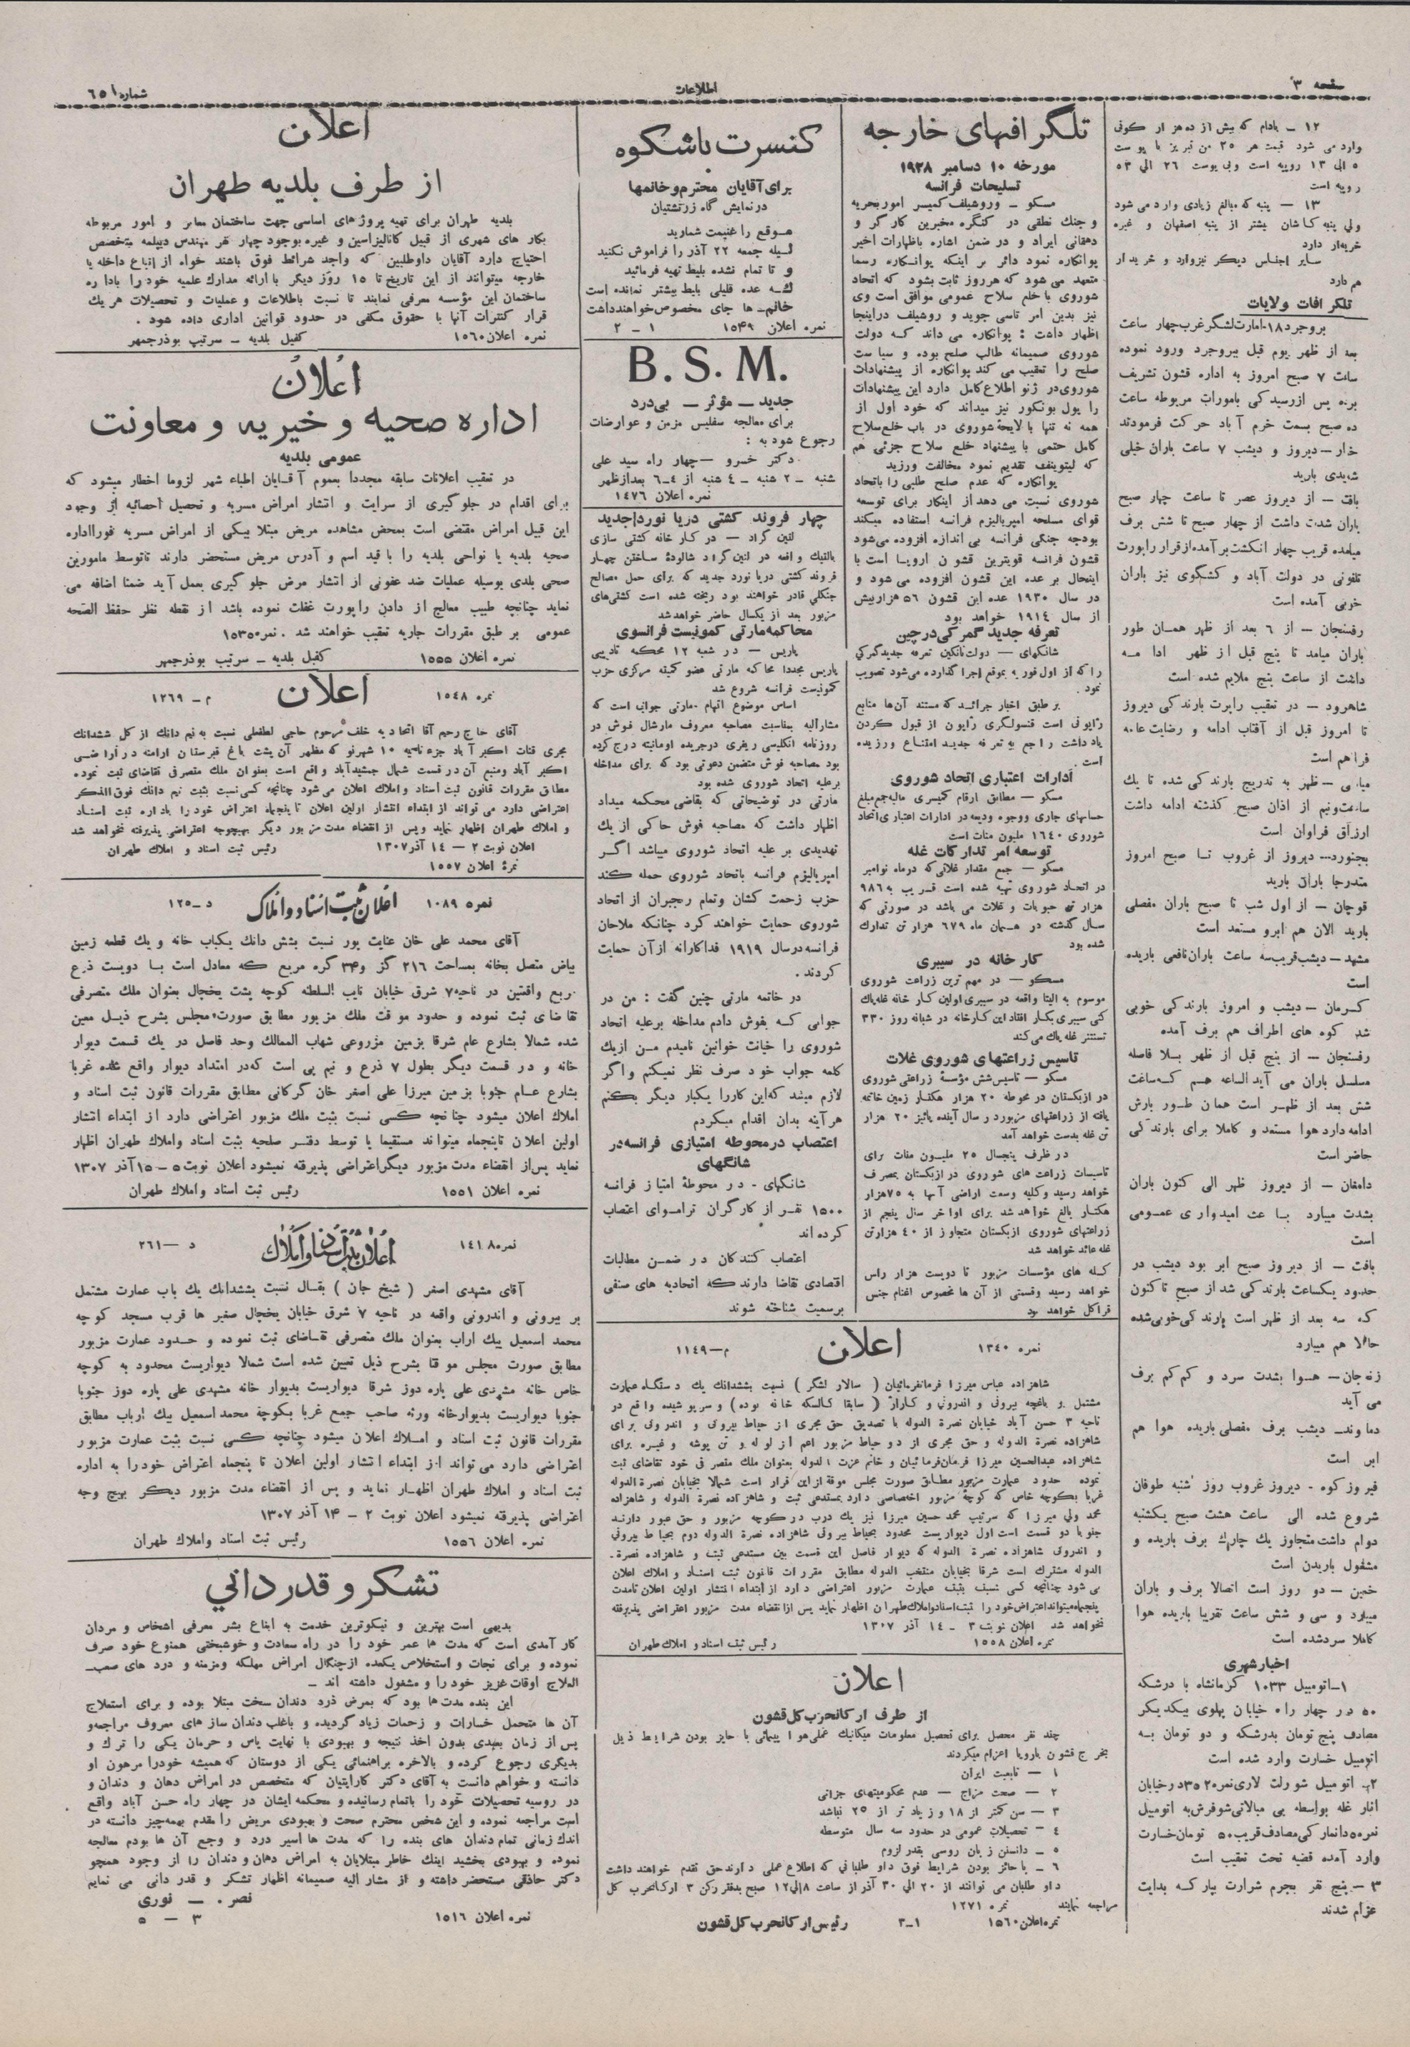 صفحه ۳
اطلاعات
شماره ۶۵۱
۱۲ ـ بادام که بیش از ده هزار کونی
وارد می شود قیمت هر ۲۵ من تبریز با پوست
۵ الی ۱۳ روپیه است وبی پوست ۲۶ الی ۵۳
روپیه است
۱۳ ـ پنبه که مبالغ زیادی وارد می شود
ولی پنبه کاشان بیشتر از پنبه اصفهان و غیره
خریدار دارد
سایر اجناس دیگر نیز وارد و خریدار
هم دارد
تلگرافات ولایات
بروجرد ۱۸ـ امارت لشگر غرب چهار ساعت
بعد از ظهر یوم قبل ببروجرد ورود نموده
ساعت ۷ صبح امروز به اداره قشون تشریف
برده پس از رسیدگی بامورات مربوطه ساعت
ده صبح بسمت خرم آباد حرکت فرمودند
خوار ـ دیروز و دیشب ۷ ساعت باران خیلی
شدیدی بارید
بافت ـ از دیروز عصر تا ساعت چهار صبح
باران شدت داشت از چهار صبح تا شش برف
میامده قریب چهار انگشت برآمده از قرار راپورت
تلفونی در دولت آباد و کشکوی نیز باران
خوبی آمده است
رفسنجان ـ از ۶ بعد از ظهر همان طور
باران میامد تا پنج قبل از ظهر ادامه
داشت از ساعت پنج ملایم شده است
شاهرود ـ در تعقیب راپرت بارندگی دیروز
تا امروز قبل از آفتاب ادامه و رضایت عامه
فراهم است
میامی ـ ظهر به تدریج بارندگی شده تا یک
ساعت و نیم از اذان صبح گذشته ادامه داشت
ارزاق فراوان است
بجنورد ـ دیروز از غروب تا صبح امروز
متدرجا باران بارید
قوچان ـ از اول شب تا صبح باران مفصلی
بارید الان هم ابرو مستعد است
مشهد ـ دیشب قریب سه ساعت باران نافعی باریده
است
کرمان ـ دیشب و امروز بارندگی خوبی
شد کوه های اطراف هم برف آمده
رفسنجان ـ از پنج قبل از ظهر بلا فاصله
مسلسل باران می آید الساعه هم که ساعت
شش بعد از ظهر است همان طور بارش
ادامه دارد هوا مستعد و کاملا برای بارندگی
حاضر است
دامغان ـ از دیروز ظهر الی کنون باران
بشدت میبارد باعث امیدواری عمومی
است
بافت ـ از دیروز صبح ابر بود دیشب در
حدود یکساعت بارندگی شد از صبح تا کنون
که سه بعد از ظهر است بارندگی خوبی شده
حالا هم میبارد
زنجان ـ هوا بشدت سرد و کم کم برف
می آید
دماوند ـ دیشب برف مفصلی باریده هوا هم
ابر است
فیروزکوه ـ دیروز غروب روز شنبه طوفان
شروع شده الی ساعت هشت صبح یکشنبه
دوام داشت متجاوز یک چارک برف باریده و
مشغول باریدن است
خمین ـ دو روز است اتصالا برف و باران
میبارد و سی و شش ساعت تقریبا باریده هوا
کاملا سرد شده است
اخبار شهری
۱ـ اتومبیل ۱۰۳۳ کرمانشاه با درشکه
۵۰ در چهار راه خیابان پهلوی بیکدیگر
مصادف پنج تومان بدرشکه و دو تومان به
اتومبیل خسارت وارد شده است
۲ـ اتومبیل شورلت لاری نمره ۳۵۲ در خیابان
انبار غله بواسطه بی مبالاتی شوفرش به اتومبیل
نمره ۵۰ دانمارکی مصادف قریب ۵۰ تومان خسارت
وارد آمده قضیه تحت تعقیب است
۳ ـ پنج نفر بجرم شرارت بپارکه بدایت
اعزام شدند
تلگرافهای خارجه
مورخه ۱۰ دسامبر ۱۹۲۸
تسلیحات فرانسه
مسکو ـ وروشیلف کمیسر امور بحریه
و جنک نطقی در کنگره مخبرین کارگر و
دهقانی ایراد و در ضمن اشاره باظهارات اخیر
پوانکاره نمود دائر بر اینکه پوانکاره رسما
متعهد می شود که هر روز ثابت بشود که اتحاد
شوروی با خلع سلاح عمومی موافق است وی
نیز بدین امر تاسی جوید و روشیلف در اینجا
اظهار داشت : پوانکاره می داند که دولت
شوروی صمیمانه طالب صلح بوده و سیاست
صلح را تعقیب می کند پوانکاره از پیشنهادات
شوروی در ژنو اطلاع کامل دارد این پیشنهادات
را پول بونکور نیز میداند که خود اول از
همه نه تنها با لایحه شوروی در باب خلع سلاح
کامل حتمی با پیشنهاد خلع سلاح جزئی هم
که لیتوینف تقدیم نمود مخالفت ورزید
پوانکاره که عدم صلح طلبی را باتحاد
شوروی نسبت می دهد از اینکار برای توسعه
قوای مسلحه امپریالیزم فرانسه استفاده میکند
بودجه جنگی فرانسه بی اندازه افزوده می شود
قشون فرانسه قویترین قشون اروپا است با
اینحال بر عده این قشون افزوده می شود و
در سال ۱۹۳۰ عده این قشون ۵۶ هزار بیش
از سال ۱۹۱۴ خواهد بود
تعرفه جدید گمرکی در چین
شانگهای ـ دولت نانکین تعرفه جدید گمرکی
را که از اول فوریه بموقع اجرا گذارده می شود تصویب
نمود
بر طبق اخبار جرائد که مستند آن ها منابع
ژاپونی است قنسولگری ژاپون از قبول کردن
یادداشت راجع به تعرفه جدید امتناع ورزیده
است
ادارات اعتباری اتحاد شوروی
مسکو ـ مطابق ارقام کمیسری مالیه جمع مبلغ
حسابهای جاری و وجوه ودیعه در ادارات اعتباری اتحاد
شوروی ۱۶۴۰ ملیون منات است
توسعه امر تدارکات غله
مسکو ـ جمع مقدار غلاتی که در ماه نوامبر
در اتحاد شوروی تهیه شده است قریب به ۹۸۶
هزار تن حبوبات و غلات می باشد در صورتی که
سال گذشته در همان ماه ۶۷۹ هزار تن تدارک
شده بود
کارخانه در سیبری
مسکو ـ در مهم ترین زراعت شوروی
موسوم به الیتا واقعه در سیبری اولین کارخانه غله پاک
کنی سیبری بکار افتاد این کارخانه در شبانه روز ۳۳۰
تستنتر غله پاک می کند
تاسیس زراعتهای شوروی غلات
مسکو ـ تاسیس شش مؤسسه زراعتی شوروی
در ازبکستان در محوطه ۲۰ هزار هکتار زمین خاتمه
یافته از زراعتهای مزبور در سال آینده پائیز ۲۰ هزار
تن غله بدست خواهد آمد
در ظرف پنجسال ۲۵ ملیون منات برای
تاسیسات زراعت های شوروی در ازبکستان بمصرف
خواهد رسید و کلیه وسعت اراضی آنها به ۷۵ هزار
هکتار بالغ خواهد شد برای اواخر سال پنجم از
زراعتهای شوروی ازبکستان متجاوز از ۴۰ هزار تن
غله عائد خواهد شد
گله های مؤسسات مزبور تا دویست هزار راس
خواهد رسید و قسمتی از آن ها مخصوص اغنام جنس
قراکل خواهد بود
کنسرت باشکوه
برای آقایان محترم و خانمها
در نمایش گاه زرتشتیان
موقع را غنیمت شمارید
لیله جمعه ۲۲ آذر را فراموش نکنید
و تا تمام نشده بلیط تهیه فرمائید
که عده قلیلی بلیط بیشتر نمانده است
خانم ها جای مخصوص خواهند داشت
نمره اعلان ۱۵۴۹ ۱ ـ ۲
B. S. M.
جدید ـ مؤثر ـ بی درد
برای معالجه سفلیس مزمن و عوارضات
رجوع شود به :
دکتر خسرو ـ چهار راه سید علی
شنبه ـ ۲ شنبه ـ ۴ شنبه از ۴ـ۶ بعد از ظهر
نمره اعلان ۱۴۷۶
چهار فروند کشتی دریا نورد جدید
لنین گراد ـ در کارخانه کشتی سازی
بالتیک واقعه در لنین گراد شالوده ساختن چهار
فروند کشتی دریا نورد جدید که برای حمل مصالح
جنگلی قادر خواهند بود ریخته شده است کشتی های
مزبور بعد از یکسال حاضر خواهد شد
محاکمه مارتی کمونیست فرانسوی
پاریس ـ در شعبه ۱۲ محکمه تادیبی
پاریس مجددا محاکمه مارتی عضو کمیته مرکزی حزب
کمونیست فرانسه شروع شد
اساس موضوع اتهام ـ مارتی جوابی است که
مشارالیه بمناسبت مصاحبه معروف مارشال فوش در
روزنامه انگلیسی ریفری در جریده اومانیته درج کرده
بود مصاحبه فوش متضمن دعوتی بود که برای مداخله
بر علیه اتحاد شوروی شده بود
مارتی در توضیحاتی که بقاضی محکمه میداد
اظهار داشت که مصاحبه فوش حاکی از یک
تهدیدی بر علیه اتحاد شوروی میباشد اگر
امپریالیزم فرانسه باتحاد شوروی حمله کند
حزب زحمت کشان و تمام رنجبران از اتحاد
شوروی حمایت خواهند کرد چنانکه ملاحان
فرانسه در سال ۱۹۱۹ فداکارانه از آن حمایت
کردند.
در خاتمه مارتی چنین گفت : من در
جوابی که بفوش دادم مداخله بر علیه اتحاد
شوروی را خیانت خوانین نامیدم من از یک
کلمه جواب خود صرف نظر نمیکنم و اگر
لازم میشد که این کار را یکبار دیگر بکنم
هر آینه بدان اقدام میکردم
اعتصاب در محوطه امتیازی فرانسه در
شانگهای
شانگهای ـ در محوطه امتیاز فرانسه
۱۵۰۰ نفر از کارگران تراموای اعتصاب
کرده اند
اعتصاب کنندگان در ضمن مطالبات
اقتصادی تقاضا دارند که اتحادیه های صنفی
برسمیت شناخته شوند
نمره ۱۳۴۰ اعلان م ـ ۱۱۴۹
شاهزاده عباس میرزا فرمانفرمائیان ( سالار لشگر ) نسبت بششدانک یک دستگاه عمارت
مشتمل بر باغچه بیرونی و اندرونی و گاراژ ( سابقا کالسکه خانه بوده ) و سر پوشیده واقع در
ناحیه ۳ حسن آباد خیابان نصرة الدوله با تصدیق حق مجری از حیاط بیرونی و اندرونی برای
شاهزاده نصرة الدوله و حق مجری از دو حیاط مزبور اعم از لوله و تن پوشه و غیره برای
شاهزاده عبدالحسین میرزا فرمان فرمائیان و خانم عزت الدوله بعنوان ملک متصرفی خود تقاضای ثبت
نموده حدود عمارت مزبور مطابق صورت مجلس موقة از این قرار است شمالا بخیابان نصرة الدوله
غربا بکوچه خاص که کوچه مزبور اختصاصی دارد بمستدعی ثبت و شاهزاده نصرة الدوله و شاهزاده
محمد ولی میرزا که سرتیپ محمد حسین میرزا نیز یک درب در کوچه مزبور و حق عبور دارند
جنوبا دو قسمت است اول دیواریست محدود بحیاط بیرونی شاهزاده نصرة الدوله دوم بحیاط بیرونی
و اندرونی شاهزاده نصرة الدوله که دیوار فاصل این قسمت بین مستدعی ثبت و شاهزاده نصرة ـ
الدوله مشترک است شرقا بخیابان منتخب الدوله مطابق مقررات قانون ثبت اسناد و املاک اعلان
می شود چنانچه کسی نسبت بثبت عمارت مزبور اعتراضی دارد از ابتداء انتشار اولین اعلان تا مدت
پنجماه میتواند اعتراض خود را بثبت اسناد و املاک طهران اظهار نماید پس از انقضاء مدت مزبور اعتراضی پذیرفته
نخواهد شد اعلان نوبت ۳ ـ ۱۴ آذر ۱۳۰۷
نمره اعلان ۱۵۵۸ رئیس ثبت اسناد و املاک طهران
اعلان
از طرف ارکانحرب کل قشون
چند نفر محصل برای تحصیل معلومات میکانیک عملی هوا پیمائی با حایز بودن شرایط ذیل
بخرج قشون باروپا اعزام میگردند
۱ ـ تابعیت ایران
۲ ـ صحت مزاج ـ عدم محکومیتهای جزائی
۳ ـ سن کمتر از ۱۸ و زیاد تر از ۲۵ نباشد
۴ ـ تحصیلات عمومی در حدود سه سال متوسطه
۵ ـ دانستن زبان روسی بقدر لزوم
۶ ـ با حائز بودن شرایط فوق داوطلبانی که اطلاع عملی دارند حق تقدم خواهند داشت
داوطلبان می توانند از ۲۰ الی ۳۰ آذر از ساعت ۸ الی ۱۲ صبح بدفتر رکن ۳ ارکانحرب کل
مراجعه نمایند نمره ۱۲۷۱
نمره اعلان ۱۵۶۰ ۱ـ۳ رئیس ارکانحرب کل قشون
اعلان
از طرف بلدیه طهران
بلدیه طهران برای تهیه پروژهای اساسی جهت ساختمان معابر و امور مربوطه
بکار های شهری از قبیل کانالیزاسین و غیره بوجود چهار نفر مهندس دیپلمه متخصص
احتیاج دارد آقایان داوطلبین که واجد شرائط فوق باشند خواه از اتباع داخله یا
خارجه میتوانند از این تاریخ تا ۱۵ روز دیگر با ارائه مدارک علمیه خود را باداره
ساختمان این مؤسسه معرفی نمایند تا نسبت باطلاعات و عملیات و تحصیلات هر یک
قرار کنترات آنها با حقوق مکفی در حدود قوانین اداری داده شود .
نمره اعلان ۱۵۶۰ کفیل بلدیه ـ سرتیپ بوذرجمهر
اعلان
اداره صحیه و خیریه و معاونت
عمومی بلدیه
در تعقیب اعلانات سابقه مجددا بعموم آقایان اطباء شهر لزوما اخطار میشود که
برای اقدام در جلوگیری از سرایت و انتشار امراض مسریه و تحصیل احصائیه از وجود
این قبیل امراض مقتضی است بمحض مشاهده مریض مبتلا بیکی از امراض مسریه فورا اداره
صحیه بلدیه یا نواحی بلدیه را با قید اسم و آدرس مریض مستحضر دارند تا توسط مامورین
صحی بلدی بوسیله عملیات ضد عفونی از انتشار مرض جلوگیری بعمل آید ضمنا اضافه می
نماید چنانچه طبیب معالج از دادن راپورت غفلت نموده باشد از نقطه نظر حفظ الصحه
عمومی بر طبق مقررات جاریه تعقیب خواهند شد . نمره ۱۵۳۵
نمره اعلان ۱۵۵۵ کفیل بلدیه ـ سرتیپ بوذرجمهر
نمره ۱۵۴۸ اعلان م ـ ۱۲۶۹
آقای حاج رحیم آقا اتحادیه خلف مرحوم حاجی لطفعلی نسبت به نیم دانک از کل ششدانک
مجری قنات اکبر آباد جزء ناحیه ۱۰ شهر نو که مظهر آن پشت باغ قبرستان ارامنه در اراضی
اکبر آباد و منبع آن در قسمت شمال جمشیدآباد واقع است بعنوان ملک متصرفی تقاضای ثبت نموده
مطابق مقررات قانون ثبت اسناد و املاک اعلان می شود چنانچه کسی نسبت بثبت نیم دانک فوق الذکر
اعتراضی دارد می تواند از ابتداء انتشار اولین اعلان تا پنجماه اعتراض خود را باداره ثبت اسناد
و املاک طهران اظهار نماید و پس از انقضاء مدت مزبور دیگر بهیچوجه اعتراضی پذیرفته نخواهد شد
اعلان نوبت ۲ ـ ۱۴ آذر ۱۳۰۷ رئیس ثبت اسناد و املاک طهران
نمره اعلان ۱۵۵۷
نمره ۱۰۸۹ اعلان ثبت اسناد و املاک د ـ ۱۲۵۰
آقای محمد علی خان عنایت پور نسبت بشش دانک یکباب خانه و یک قطعه زمین
بیاض متصل بخانه بمساحت ۲۱۶ گز و ۳۴ گره مربع که معادل است با دویست ذرع
مربع واقعتین در ناحیه ۷ شرق خیابان نایب السلطنه کوچه پشت یخچال بعنوان ملک متصرفی
تقاضای ثبت نموده و حدود موقت ملک مزبور مطابق صورت مجلس بشرح ذیل معین
شده شمالا بشارع عام شرقا بزمین مزروعی شهاب الممالک وحد فاصل در یک قسمت دیوار
خانه و در قسمت دیگر بطول ۷ ذرع و نیم پی است که در امتداد دیوار واقع شده غربا
بشارع عام جنوبا بزمین میرزا علی اصغر خان گرکانی مطابق مقررات قانون ثبت اسناد و
املاک اعلان میشود چنانچه کسی نسبت بثبت ملک مزبور اعتراضی دارد از ابتداء انتشار
اولین اعلان تا پنجماه میتواند مستقیما یا توسط دفتر صلحیه بثبت اسناد و املاک طهران اظهار
نماید پس از انقضاء مدت مزبور دیگر اعتراضی پذیرفته نمیشود اعلان نوبت ۵ ـ ۱۵ آذر ۱۳۰۷
نمره اعلان ۱۵۵۱ رئیس ثبت اسناد و املاک طهران
نمره ۱۴۱۸ اعلان ثبت اسناد و املاک د ـ ۲۶۱
آقای مشهدی اصغر ( شیخ جان ) بقال نسبت بششدانک یک باب عمارت مشتمل
بر بیرونی و اندرونی واقعه در ناحیه ۷ شرق خیابان یخچال صغیر ها قرب مسجد کوچه
محمد اسمعیل بیک ارباب بعنوان ملک متصرفی تقاضای ثبت نموده و حدود عمارت مزبور
مطابق صورت مجلس موقتا بشرح ذیل تعین شده است شمالا دیواریست محدود به کوچه
خاص خانه مشهدی علی پاره دوز شرقا دیواریست بدیوار خانه مشهدی علی پاره دوز جنوبا
جنوبا دیواریست بدیوار خانه ورثه صاحب جمع غربا بکوچه محمد اسمعیل بیک ارباب مطابق
مقررات قانون ثبت اسناد و املاک اعلان میشود چنانچه کسی نسبت بثبت عمارت مزبور
اعتراضی دارد می تواند از ابتداء انتشار اولین اعلان تا پنجماه اعتراض خود را به اداره
ثبت اسناد و املاک طهران اظهار نماید و پس از انقضاء مدت مزبور دیگر بهیچ وجه
اعتراضی پذیرفته نمیشود اعلان نوبت ۲ ـ ۱۴ آذر ۱۳۰۷
نمره اعلان ۱۵۵۶ رئیس ثبت اسناد و املاک طهران
تشکر و قدردانی
بدیهی است بهترین و نیکوترین خدمت به ابناع بشر معرفی اشخاص و مردان
کار آمدی است که مدت ها عمر خود را در راه سعادت و خوشبختی همنوع خود صرف
نموده و برای نجات و استخلاص یکعده از چنگال امراض مهلکه و مزمنه و درد های صعب ـ
العلاج اوقات عزیز خود را و مشغول داشته اند ـ
این بنده مدت ها بود که بمرض درد دندان سخت مبتلا بوده و برای استعلاج
آن ها متحمل خسارات و زحمات زیاد گردیده و باغلب دندان ساز های معروف مراجعه و
پس از زمان بعیدی بدون اخذ نتیجه و بهبودی با نهایت یاس و حرمان یکی را ترک و
بدیگری رجوع کرده و بالاخره براهنمائی یکی از دوستان که همیشه خود را مرهون او
دانسته و خواهم دانست به آقای دکتر کاراپتیان که متخصص در امراض دهان و دندان و
در روسیه تحصیلات خود را باتمام رسانیده و محکمه ایشان در چهار راه حسن آباد واقع
است مراجعه نموده و این شخص محترم صحت و بهبودی مریض را مقدم بهمه چیز دانسته در
اندک زمانی تمام دندان های بنده را که مدت ها اسیر درد و وجع آن ها بودم معالجه
نموده و بهبودی بخشید اینک خاطر مبتلایان به امراض دهان و دندان را از وجود همچو
دکتر حاذقی مستحضر داشته و از مشار الیه صمیمانه اظهار تشکر و قدر دانی می نمایم
نصر . ـ نوری
نمره اعلان ۱۵۱۶ ۳ ـ ۵